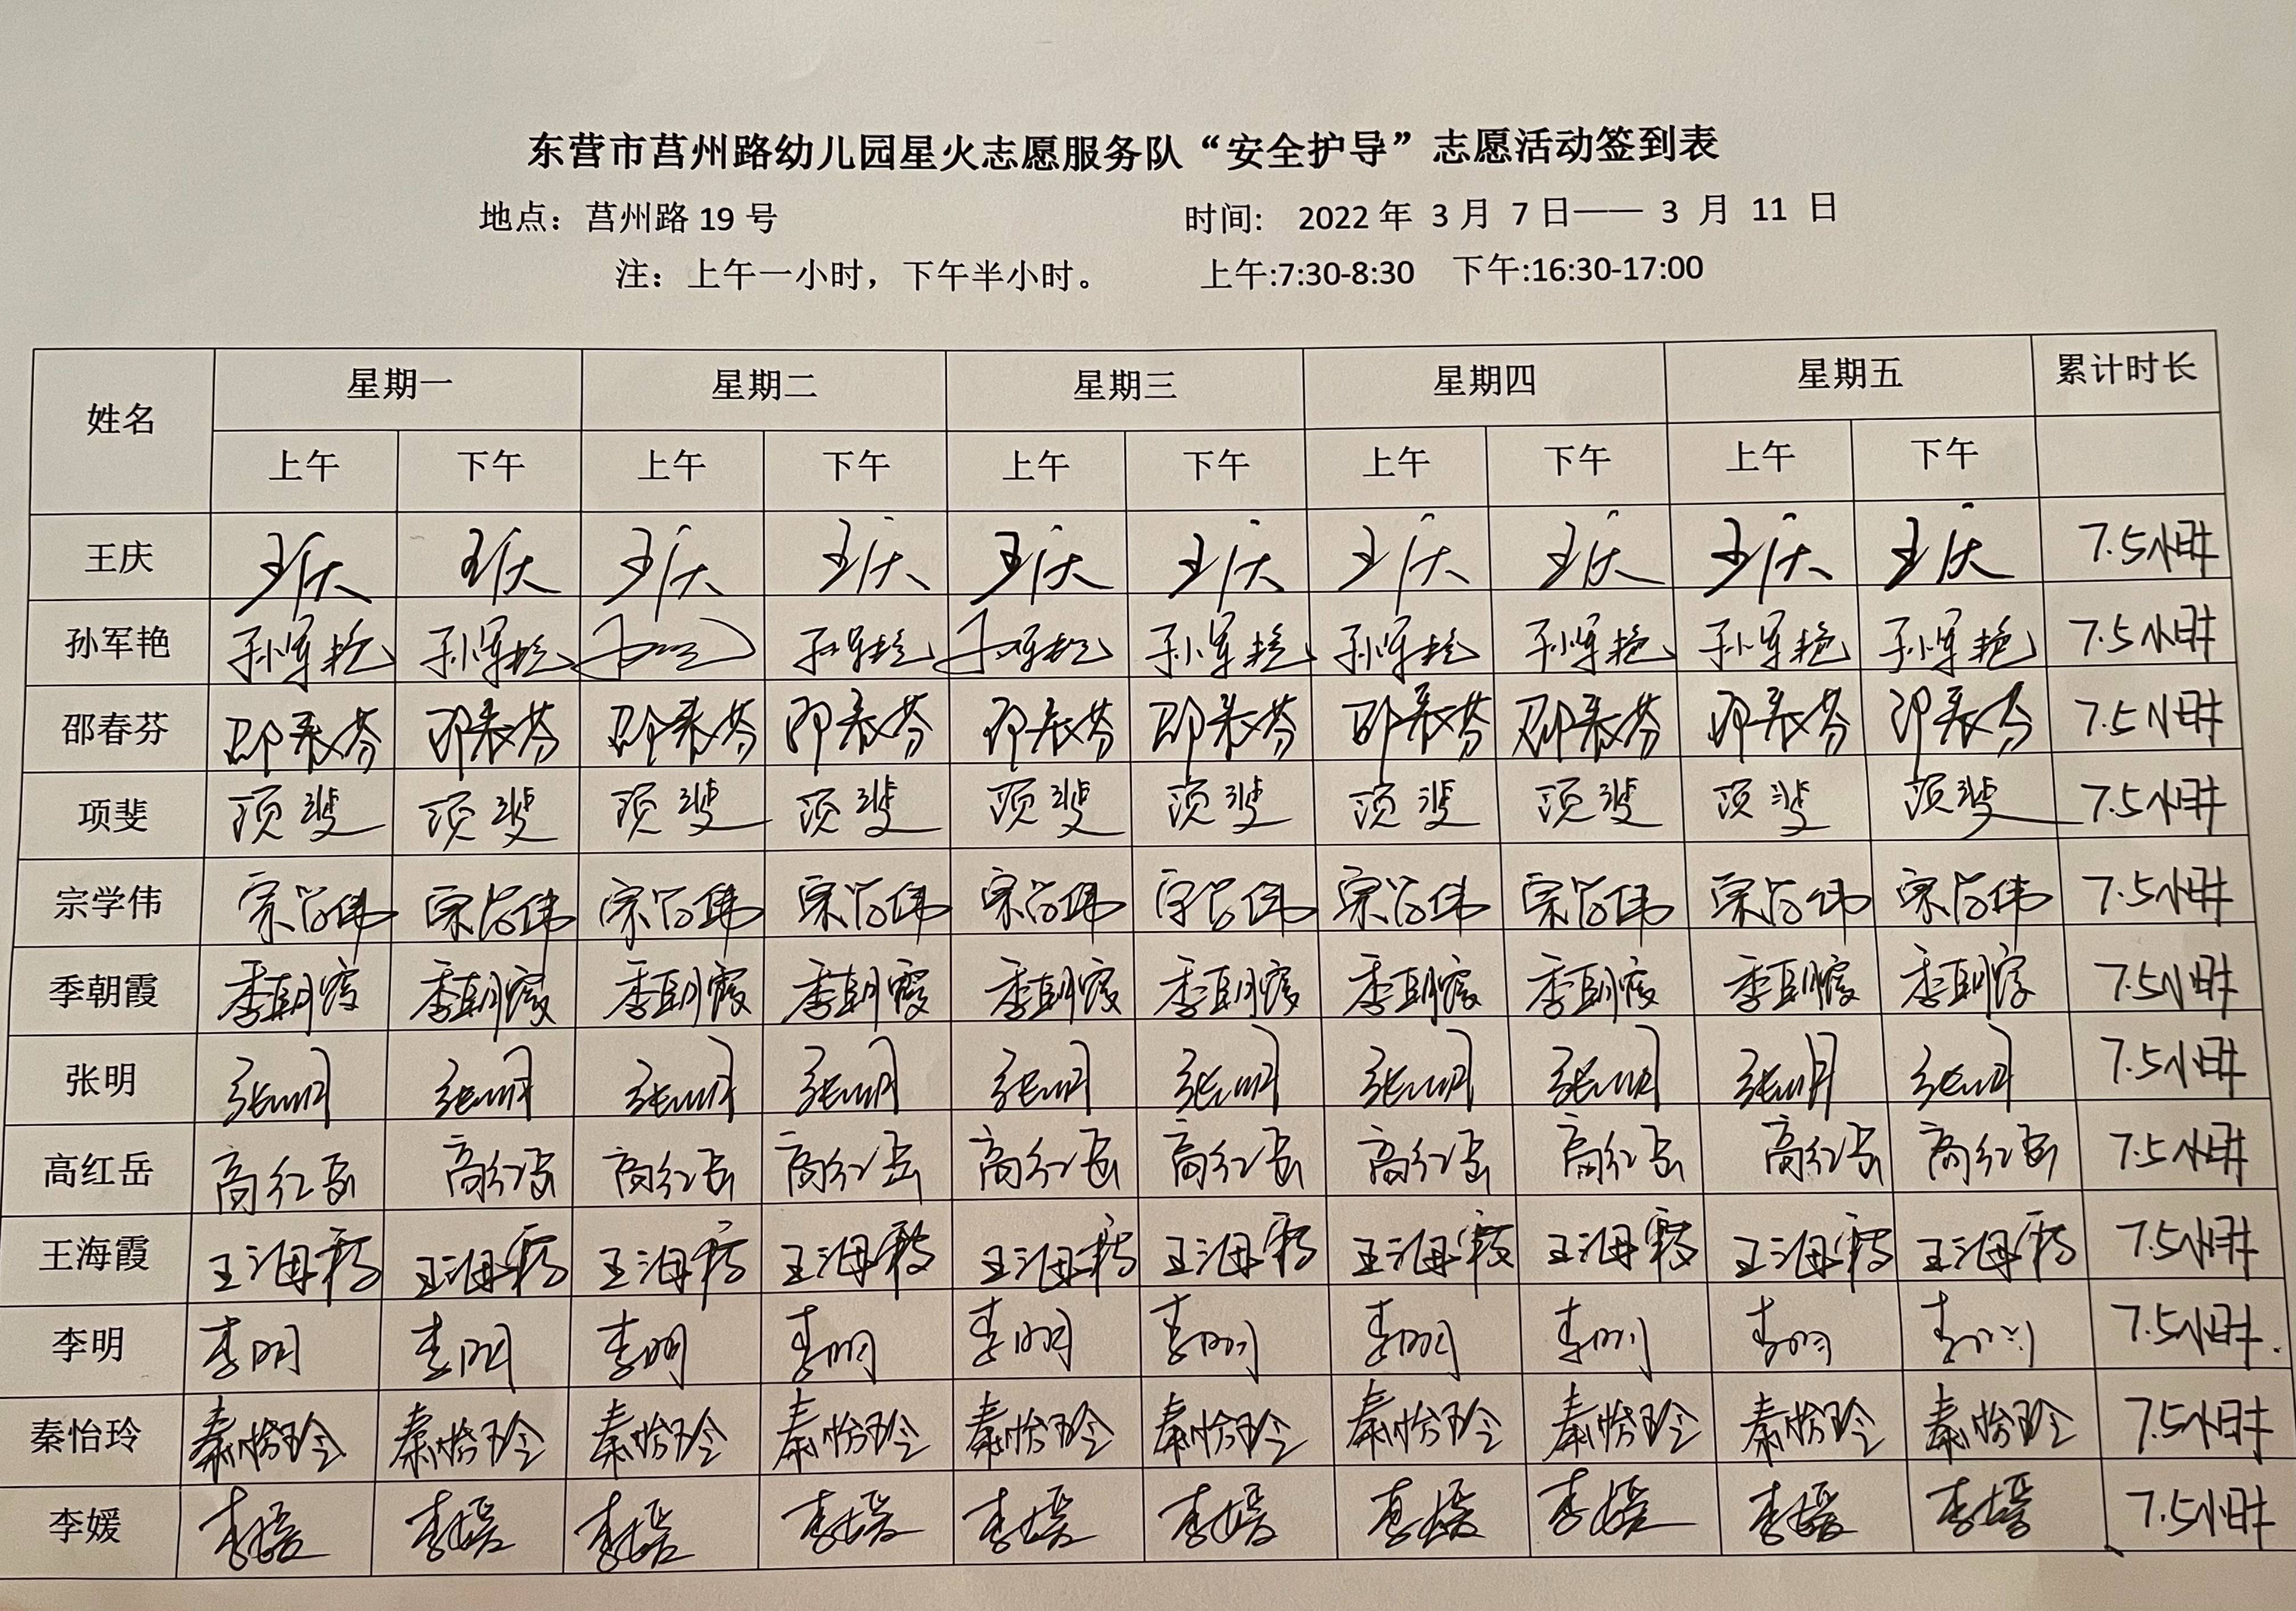 东营市莒州路幼儿园星火志愿服务队“安全护导”志愿活动签到表
地点：莒州路 19 号 时间： 2022 年 3 月 7 日—— 3 月 11 日
注：上午一小时，下午半小时。 上午:7:30-8:30 下午:16:30-17:00
姓名 星期一 星期二 星期三 星期四 星期五 累计时长
上午 下午 上午 下午 上午 下午 上午 下午 上午 下午
王庆 王庆 王庆 王庆 王庆 王庆 王庆 王庆 王庆 王庆 王庆 7.5小时
孙军艳 孙军艳 孙军艳 孙军艳 孙军艳 孙军艳 孙军艳 孙军艳 孙军艳 孙军艳 7.5小时
邵春芬 邵春芬 邵春芬 邵春芬 邵春芬 邵春芬 邵春芬 邵春芬 邵春芬 邵春芬 邵春芬 7.5小时
项斐 项斐 项斐 项斐 项斐 项斐 项斐 项斐 项斐 项斐 项斐 7.5小时
宗学伟 宗学伟 宗学伟 宗学伟 宗学伟 宗学伟 宗学伟 宗学伟 宗学伟 宗学伟 宗学伟 7.5小时
季朝霞 季朝霞 季朝霞 季朝霞 季朝霞 季朝霞 季朝霞 季朝霞 季朝霞 季朝霞 季朝霞 7.5小时
张明 张明 张明 张明 张明 张明 张明 张明 张明 张明 张明 7.5小时
高红岳 高红岳 高红岳 高红岳 高红岳 高红岳 高红岳 高红岳 高红岳 高红岳 高红岳 7.5小时
王海霞 王海霞 王海霞 王海霞 王海霞 王海霞 王海霞 王海霞 王海霞 王海霞 王海霞 7.5小时
李明 李明 李明 李明 李明 李明 李明 李明 李明 李明 李明 7.5小时.
秦怡玲 秦怡玲 秦怡玲 秦怡玲 秦怡玲 秦怡玲 秦怡玲 秦怡玲 秦怡玲 秦怡玲 秦怡玲 7.5小时
李媛 李媛 李媛 李媛 李媛 李媛 李媛 李媛 李媛 李媛 李媛 7.5小时